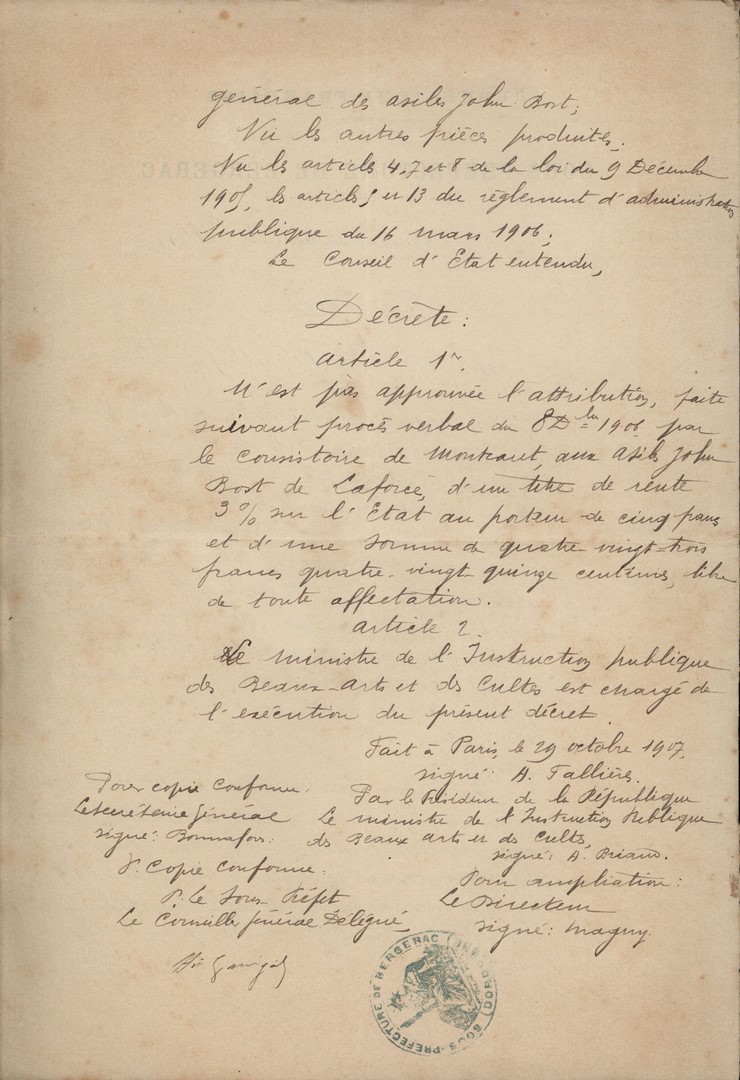 général des asiles John Bost;
Vu les autres pièces produites.
Vu les articles 4, 7 et 8 de la loi du 9 Décembre
1905, les articles 5 et 13 du règlement d'administration
publique du 16 mars 1906;
Le Conseil d'Etat entendu,
Décrète:
Article 1er.
N'est pas approuvée l'attribution, faite
suivant procès verbal du 8 Dbre 1906 par
le consistoire de Montcaut, aux Asiles John
Bost de Laforce, d'un titre de rente
3% sur l'Etat au porteur de cinq francs
et d'une somme de quatre-vingt-trois
francs quatre-vingt-quinze centimes, libre
de toute affectation.
Article 2.
Le ministre de l'Instruction publique
des Beaux-Arts et des Cultes est chargé de
l'exécution du présent décret.
Fait à Paris, le 29 octobre 1907.
signé: A. Fallières.
Par le Président de la République
Le ministre de l'Instruction Publique
des Beaux Arts et des Cultes,
signé: A. Briand.
Pour ampliation:
Le Directeur
signé: Maguy.
Pour copie conforme:
Le Secrétaire Général
signé: Bonnafous:
Pr. Copie Conforme:
P. Le Sous Préfet
Le Conseiller Général Délégué
SOUS-PRÉFECTURE DE BERGERAC (DORDOGNE)